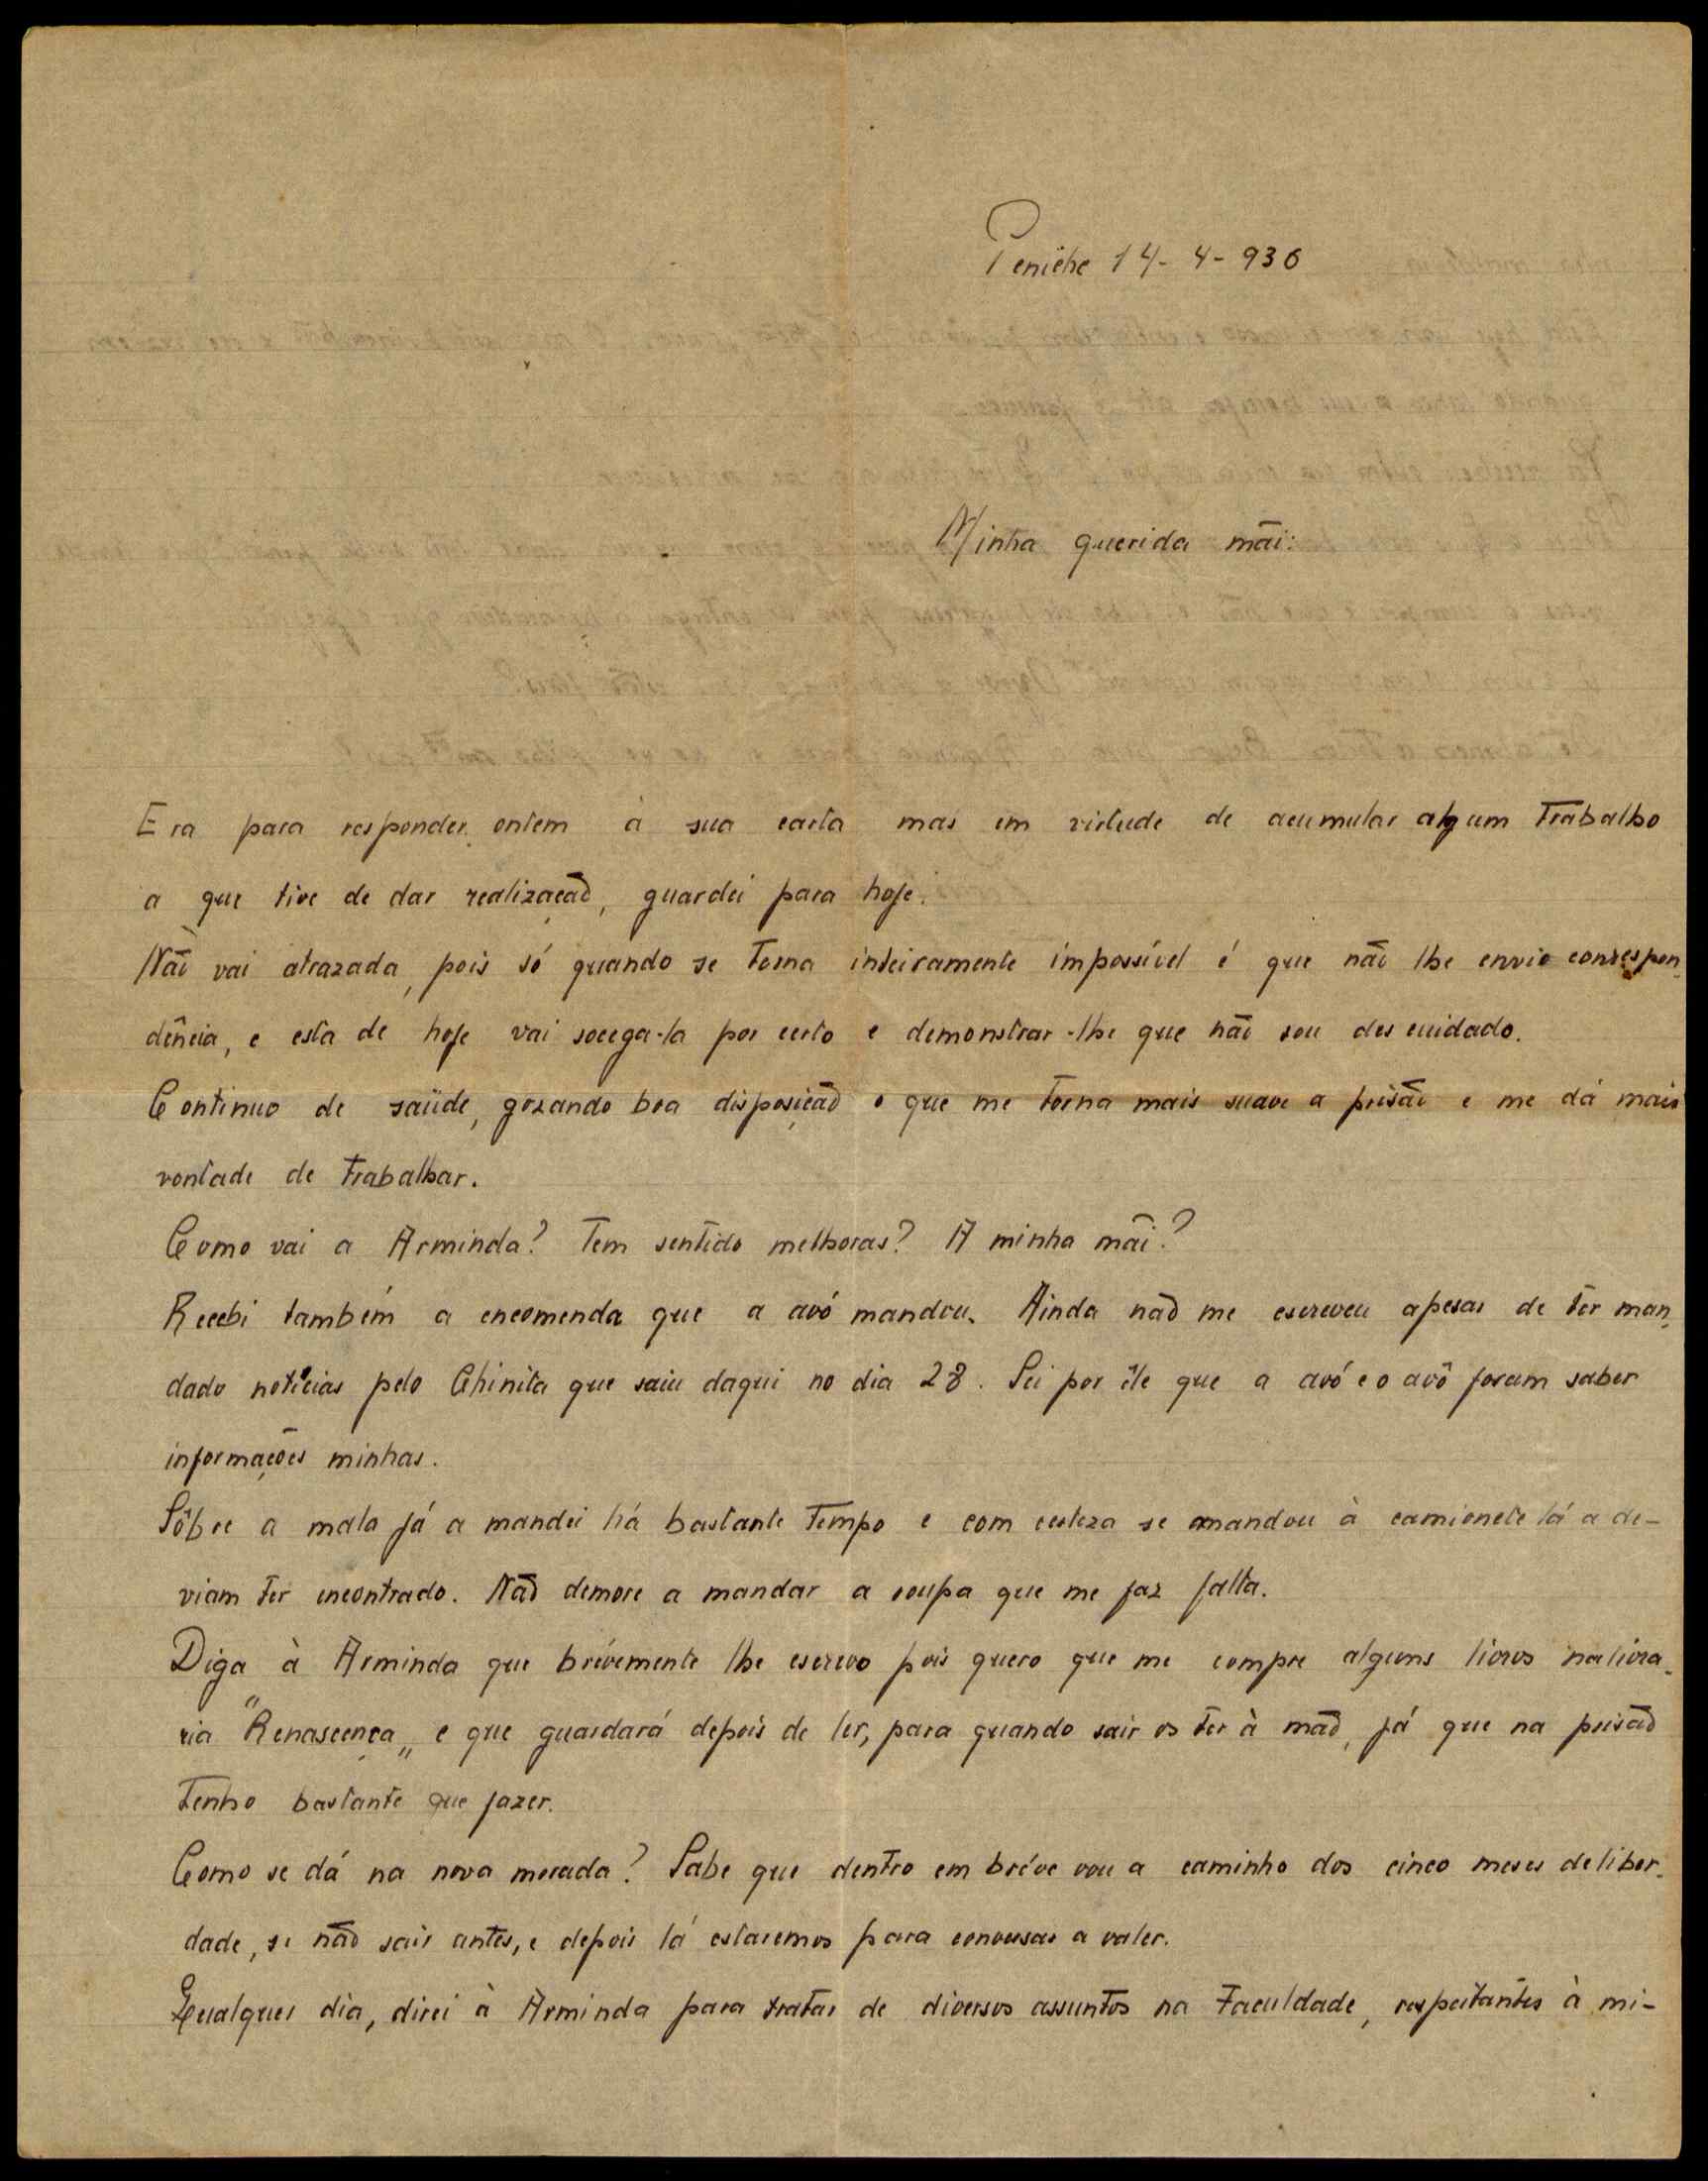 Peniche 14-4-936
Minha querida mãi:
Era para responder ontem à sua carta mas em virtude de acumular algum trabalho
a que tive de dar realização, guardei para hoje.
Não vai atrazada, pois só quando se torna inteiramente impossível é que não lhe envio correspon-
dência, e esta de hoje vai socega-la por certo e demonstrar-lhe que não sou descuidado.
Continuo de saüde, gozando boa disposição o que me torna mais suave a prisão e me dá mais
vontade de trabalhar.
Como vai a Arminda? Tem sentido melhoras? A minha mãi?
Recebi também a encomenda que a avó mandou. Ainda não me escreveu apesar de ter man-
dado notícias pelo Chinita que saiu daqui no dia 28. Sei por êle que a avó e o avô foram saber
informações minhas.
Sôbre a mala já a mandei há bastante tempo e com certeza se mandou à camionete lá a de-
viam ter encontrado. Não demore a mandar a roupa que me faz falta.
Diga à Arminda que brévemente lhe escrevo pois quero que me compre alguns livros na livra-
ria "Renascença„ e que guardará depois de ler, para quando sair os ter à mão, já que na prisão
tenho bastante que fazer.
Como se dá na nova morada? Sabe que dentro em bréve vou a caminho dos cinco meses de liber-
dade, se não sair antes, e depois lá estaremos para conversar a valer.
Qualquer dia, direi à Arminda para tratar de diversos assuntos na Faculdade, respeitantes à mi-